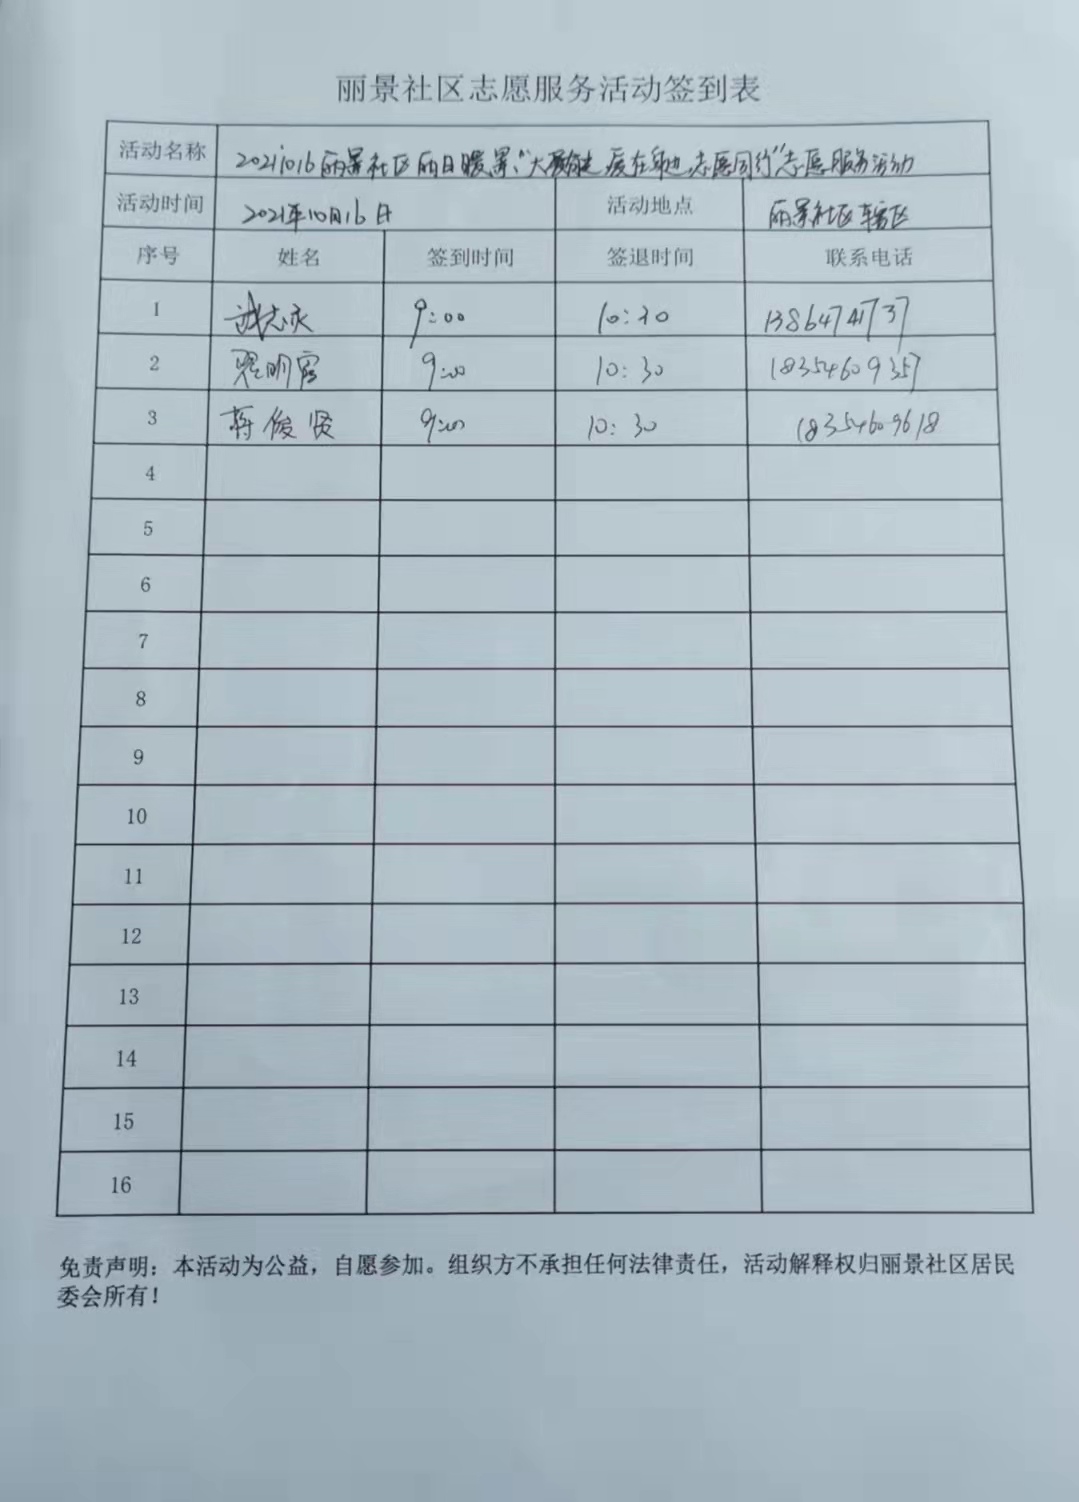 丽景社区志愿服务活动签到表
活动名称 20211016丽景社区丽日暖景、"大爱 爱在身边 志愿同行"志愿服务活动
活动时间 2021年10月16日 活动地点 丽景社区辖区
序号 姓名 签到时间 签退时间 联系电话
1 志庆 9:00 10:30 13864741737
2 翟明霞 9:00 10:30 18354609357
3 蒋俊贤 9:00 10:30 18354609618
4
5
6
7
8
9
10
11
12
13
14
15
16
免责声明：本活动为公益，自愿参加。组织方不承担任何法律责任，活动解释权归丽景社区居民
委会所有！